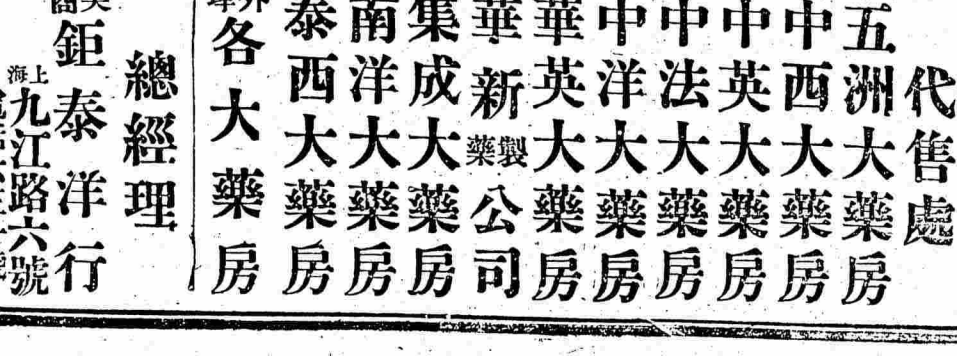 代售處
五洲大藥房
中西大藥房
中英大藥房
中法大藥房
中洋大藥房
華英大藥房
華新製藥公司
集成大藥房
南洋大藥房
泰西大藥房
外埠各大藥房
總經理
鉅泰洋行
上海九江路六號